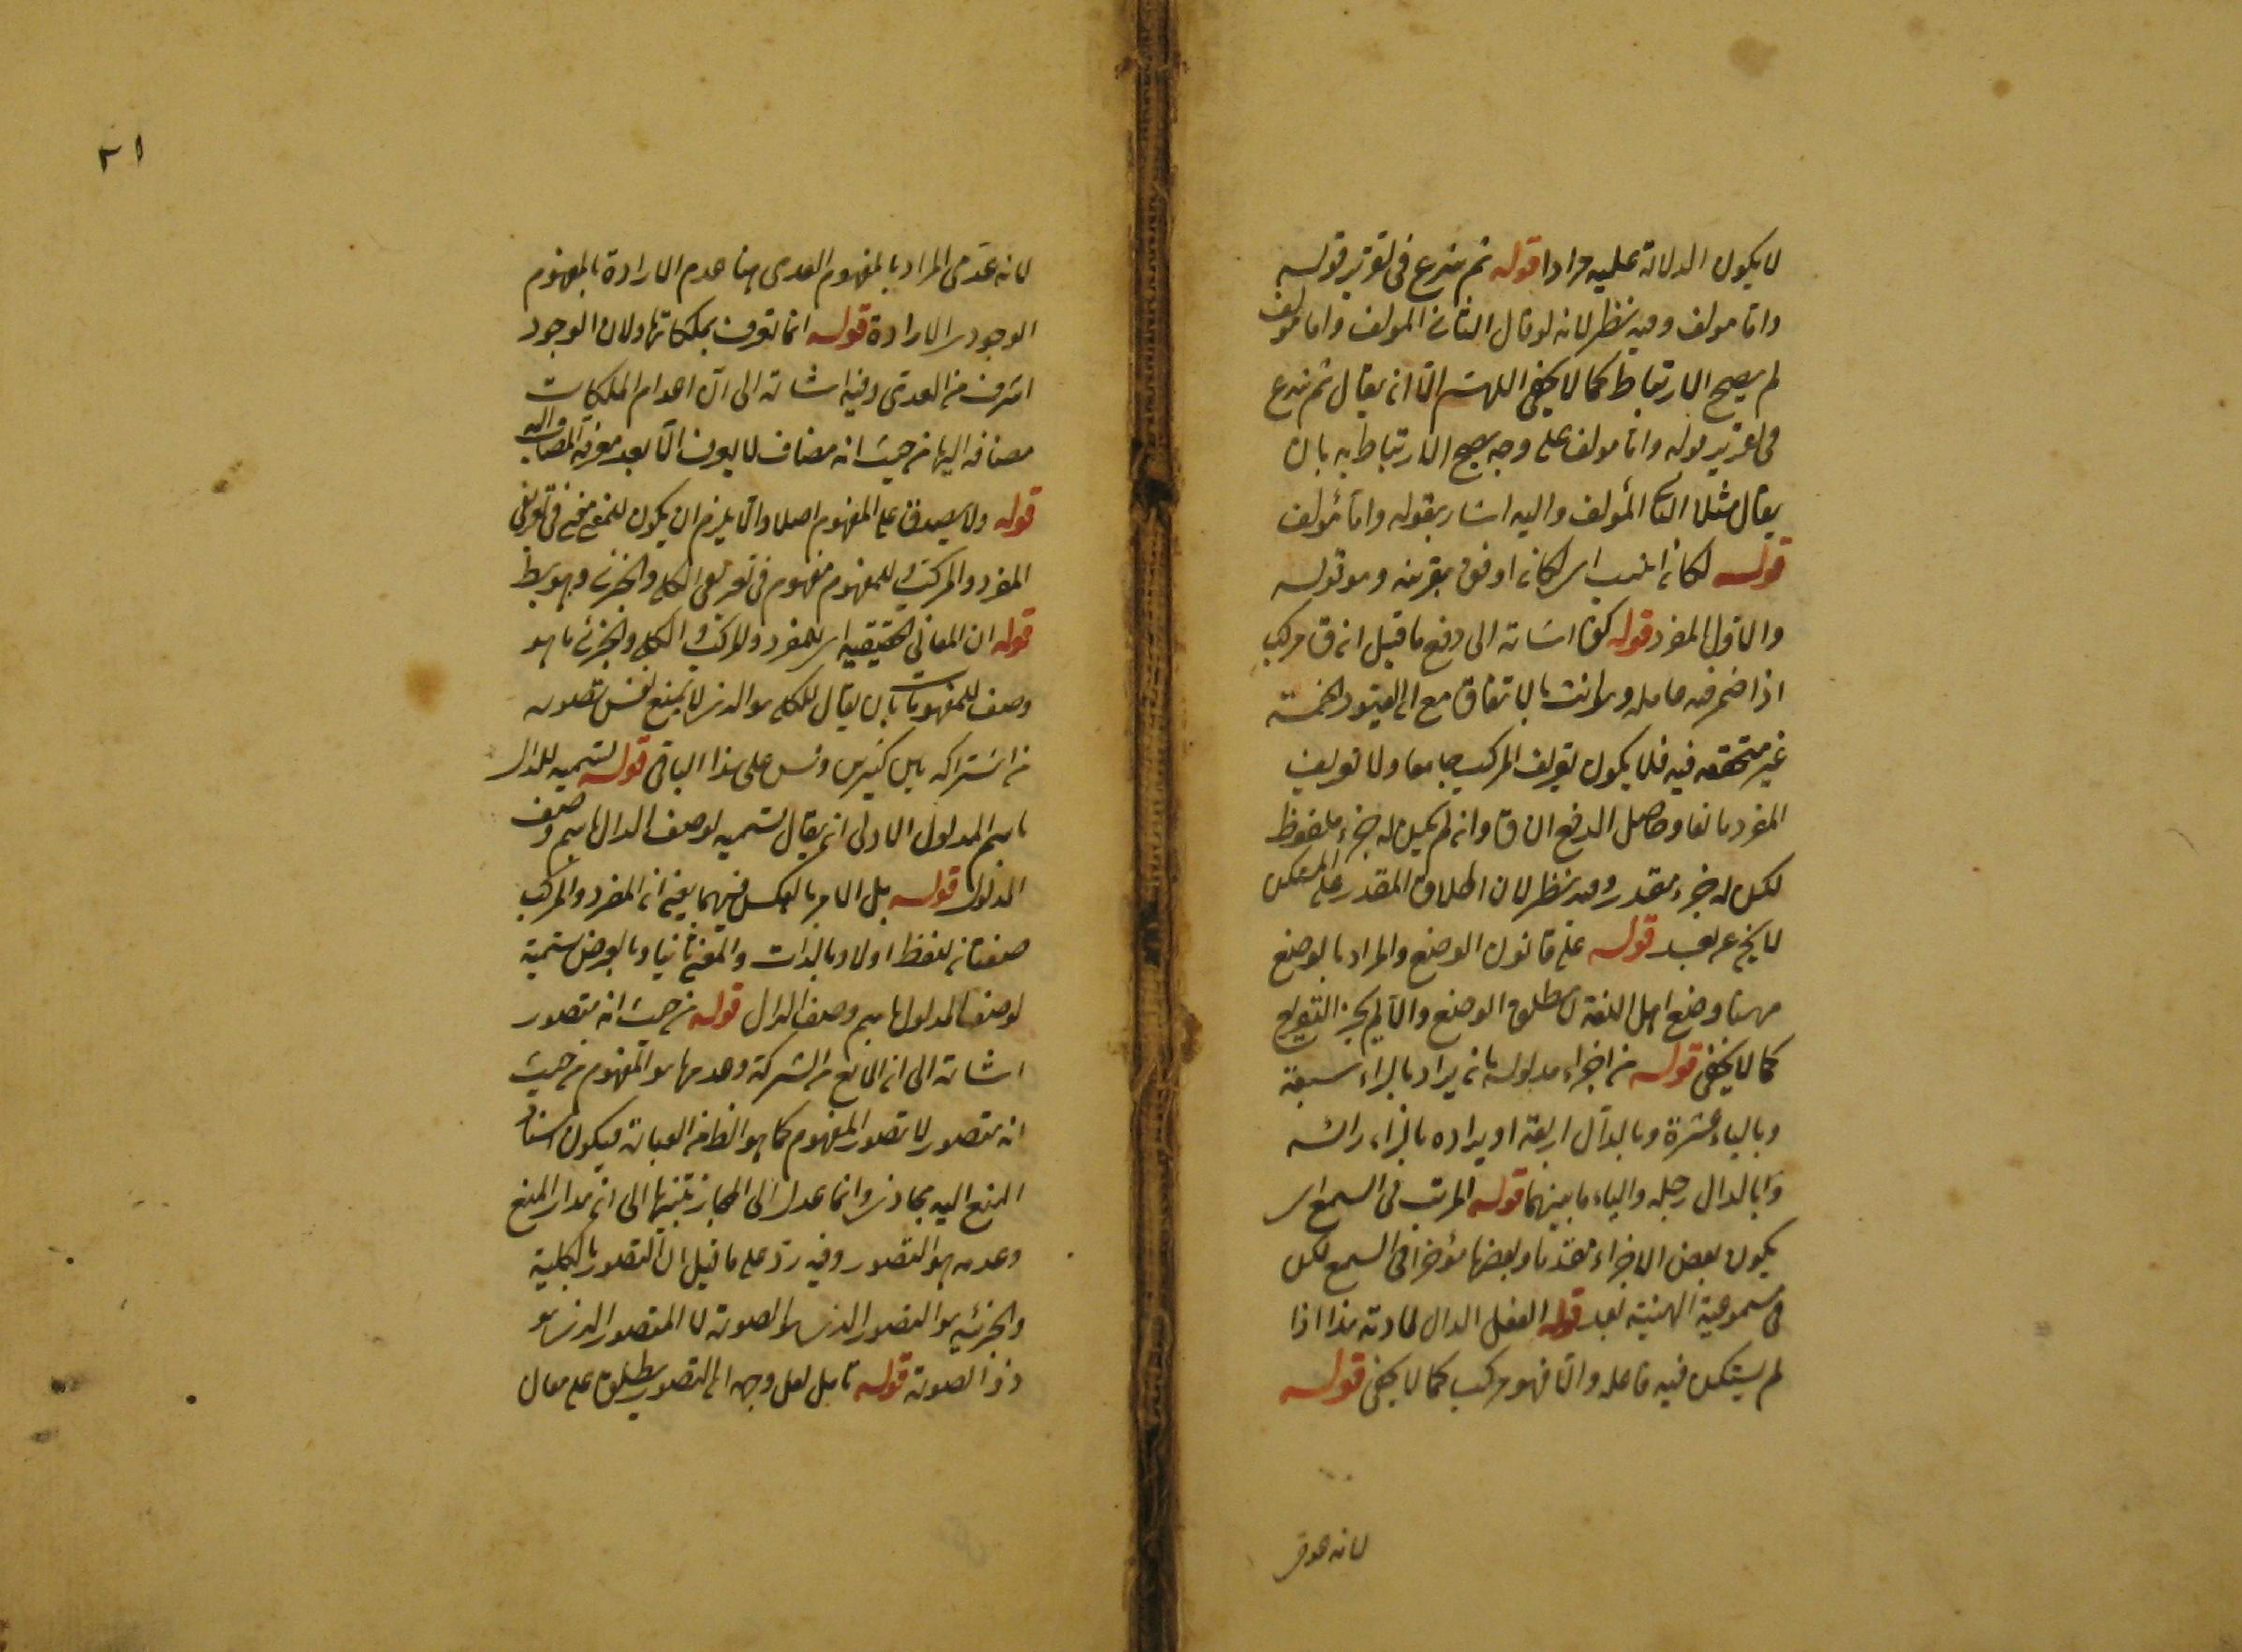 لا يكون الدلالة عليه مرادا قوله ثم شرع في تقرير قوله
واما مولف وفيه نظر لانه لو قال الثاني المولف واما مولف
لم يصح الارتباط كما لا يخفى اللهم الا ان يقال ثم شرع
في تقرير قوله واما مولف على وجه يصح الارتباط به بان
يقال مثلا الثا المؤلف واليه اشار بقوله واما مؤلف
قوله لكان انسب اى لكان اوفق بقرينه وهو قوله
والاول المفرد قوله كق اشارة الى دفع ما قيل ان ق مركب
اذا ضمر فيه فاعله وهو انت بالاتفاق مع ان القيود الخمسة
غير متحققه فيه فلا يكون تعريف المركب جامعا ولا تعريف
المفرد مانعا وحاصل الدفع ان ق وان لم يكن له جزء ملفوظ
لكن له جزء مقدر وفيه نظر لان اطلاق المقدر على المستكن
لا يخ عن بعد قوله على قانون الوضع والمراد بالوضع
ههنا وضع اهل اللغة لا مطلق الوضع والا لم يخرج التوابع
كما لا يخفى قوله من اجزاء مدلوله بان يراد بالزاء سبعة
وبالياء عشرة وبالدال اربعة او يراد بالزاء راسه
وبالدال رجله والياء ما بينهما قوله المرتب في السمع اى
يكون بعض الاجزاء مقدما وبعضها مؤخرا في السمع لكن
في مسموعية الهيئة بعد قوله الفعل الدال لمادته هذا اذا
لم يستكن فيه فاعله والا فهو مركب كما لا يخفى قوله
لانه عدمى
٢١
لانه عدمى المراد بالمفهوم العدمى هنا عدم الارادة بالمفهوم
الوجودى الارادة قوله انما تعرف بملكاتها ولان الوجود
اشرف من العدمى وفيه اشارة الى ان اعدام الملكات
مضافه اليها من حيث انه مضاف لا يعرف الا بعد معرفة المضاف اليه
قوله ولا يصدق على المفهوم اصلا والا يلزم ان يكون للمعنى معنى في تعريفي
المفرد والمركب وللمفهوم مفهوم في تعريفي الكلى والجزئى وهو بط
قوله ان المعانى الحقيقيه اى للمفرد والمركب والكلى والجزئى ما هو
وصف للمفهومات بان يقال للكلى هو الذى لا يمنع نفس تصوره
من اشتراكه بين كثيرين وقس على هذا الباقى قوله تسميه للدال
باسم المدلول الاولى ان يقال تسميه لوصف الدال باسم وصف
المدلول قوله بل الامر بالعكس فيهما يعنى ان المفرد والمركب
صفتان للفظ اولا وبالذات والمعنى ثانيا وبالعرض تسمية
لوصف المدلول باسم وصف الدال قوله من حيث انه متصور
اشارة الى ان المانع من الشركة وعدمها هو المفهوم من حيث
انه متصور لا تصور المفهوم كما هو الظ من العبارة فيكون اسناد
المنع اليه مجازى وانما عدل الى المجاز تنبيها الى ان مدار المنع
وعدمه هو التصور وفيه رد على ما قيل ان التصور بالكلية
والجزئيه هو التصور الذى هو الصورة لا المتصور الذى هو
ذو الصورة قوله تامل لعل وجهه ان التصور يطلق على معان